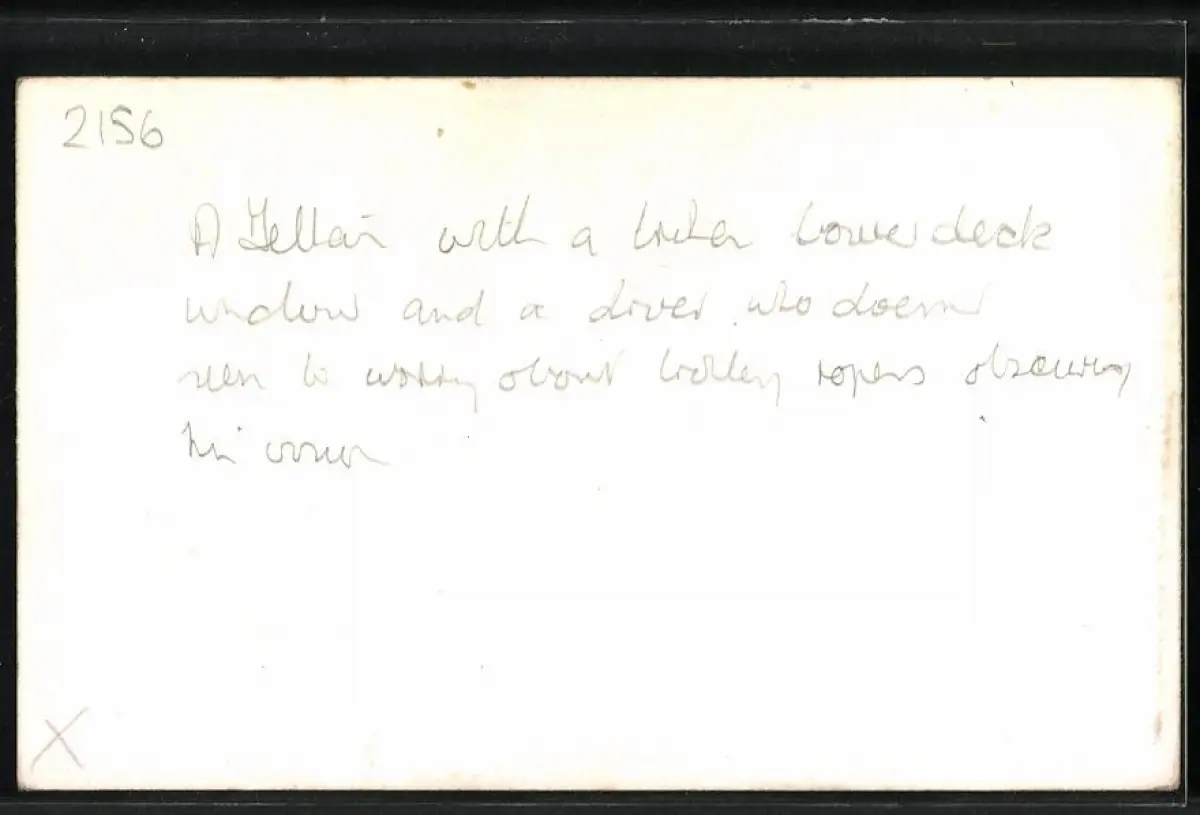 2156
A with a lower deck
window and a driver who doesn't
seem to worry about trolley ropes obscuring
his vision
X